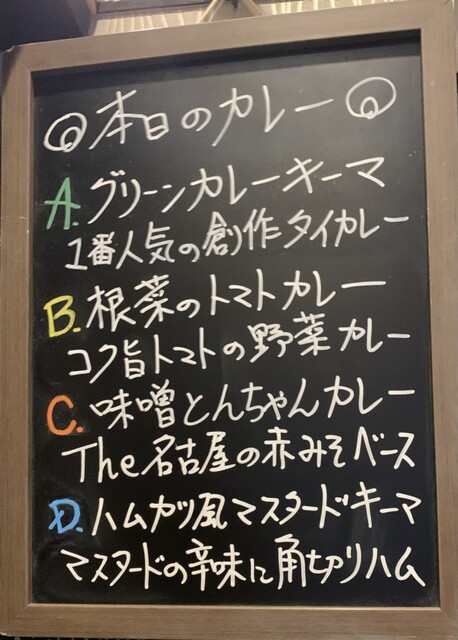 本日のカレー
A. グリーンカレーキーマ
1番人気の創作タイカレー
B. 根菜のトマトカレー
コク旨トマトの野菜カレー
C. 味噌とんちゃんカレー
The名古屋の赤みそベース
D. ハムカツ風マスタードキーマ
マスタードの辛味に角切りハム